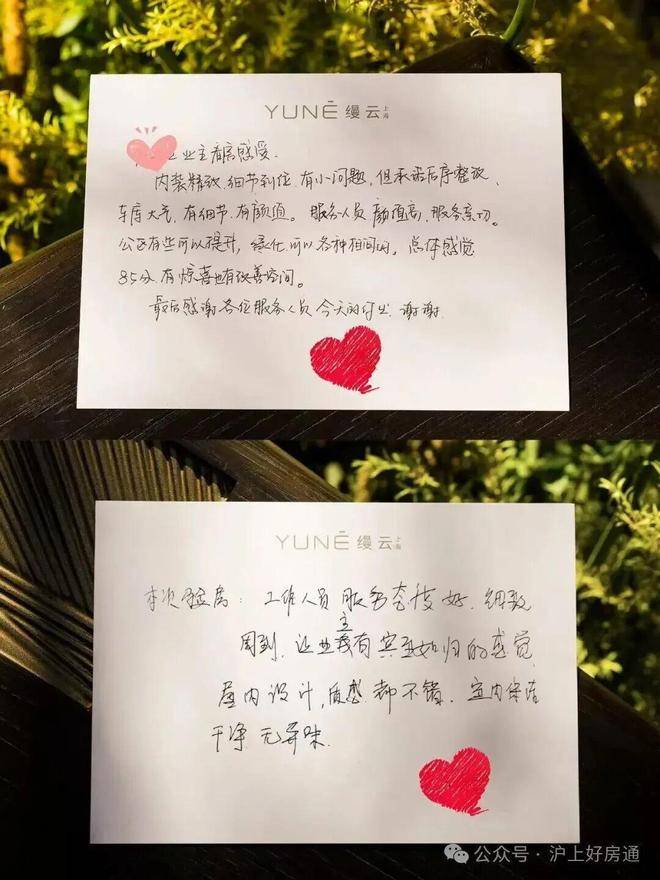 YUNÉ 缦云 上海
业主看房感受.
内装精致.细节到位.有小问题,但承诺后序整改、
车库大气,有细节.有颜值。服务人员 颜值高,服务亲切。
公区有些可以提升,绿化可以各种相间的,总体感觉
85分 有惊喜也有改善空间。
最后感谢各位服务人员今天的付出 谢谢
YUNÉ 缦云 上海
本次验房: 工作人员 服务态度好.细致
周到.让业主我有宾至如归的感觉
屋内设计,质感都不错.室内保洁
干净 无异味.
公众号·沪上好房通